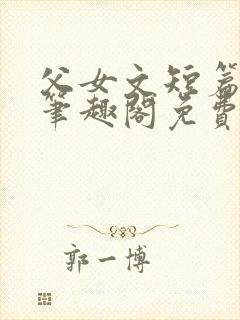 父女文短篇
笔趣阁免费
郭一博